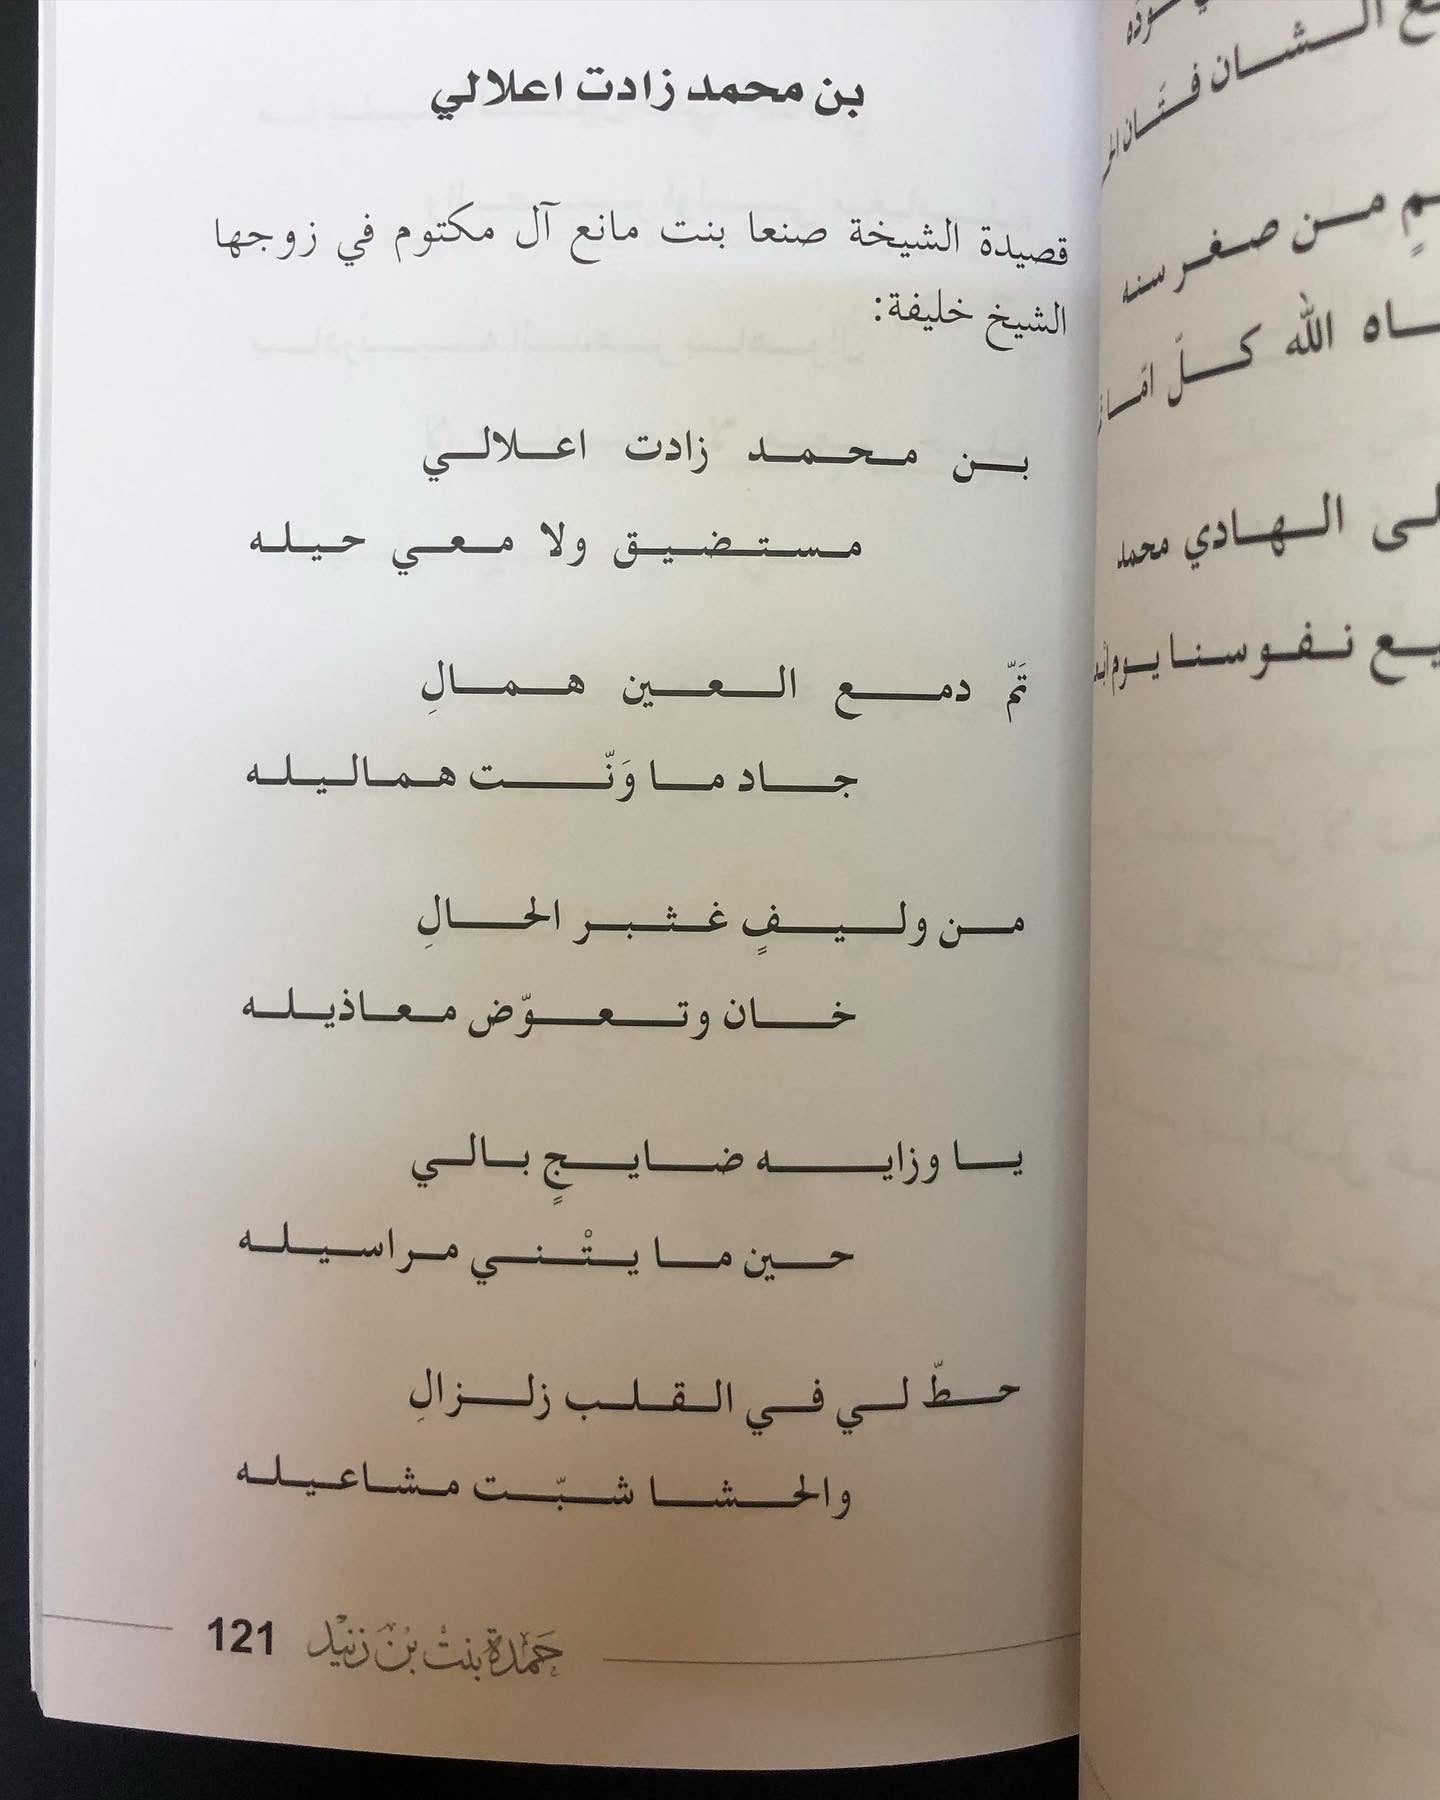 بن محمد زادت اعلالي
قصيدة الشيخة صنعا بنت مانع آل مكتوم في زوجها
الشيخ خليفة:
بن محمد زادت اعلالي
مستضيق ولا معي حيله
تَمّ دمع العين همالِ
جاد ما وَنّت هماليله
من وليفٍ غثبر الحالِ
خان وتعوّض معاذيله
يا وزايه ضايجٍ بالي
حين ما يتْني مراسيله
حطّ لي في القلب زلزالِ
والحشا شبّت مشاعيله
حمدة بنت بن زنيد 121
الشان فتّان
من صغر سنه
اه الله كلّ
الهادي محمد
نفوسنا يوم